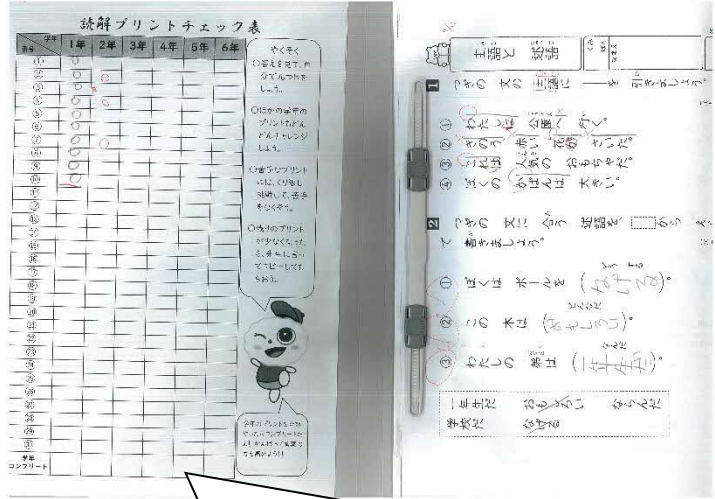 読解プリントチェック表
学年
番号
1年 2年 3年 4年 5年 6年
学年
コンプリート
やくそく
○答えを見て、自
分で丸つけを
しよう。
○ほかの学年の
プリントもどん
どんチャレンジ
しよう。
○苦手なプリント
には、くり返し
挑戦して、苦手
をなくそう。
○残りのプリント
が少なくなった
ら、先生に言っ
てコピーしても
らおう。
主語と 述語
1 つぎの 文の 主語に ――を 引きましょう。
① わたしは 公園へ 行く。
② きのう 赤い 花が さいた。
③ これは 人気の おもちゃだ。
④ ぼくの かばんは 大きい。
2 つぎの 文に 合う 述語を から
て 書きましょう。
① ぼくは ボールを (なげる)。
② この 本は (おもしろい)。
③ わたしの 弟は (一年生だ)。
一年生だ おもしろい ならんだ
学校だ なげる